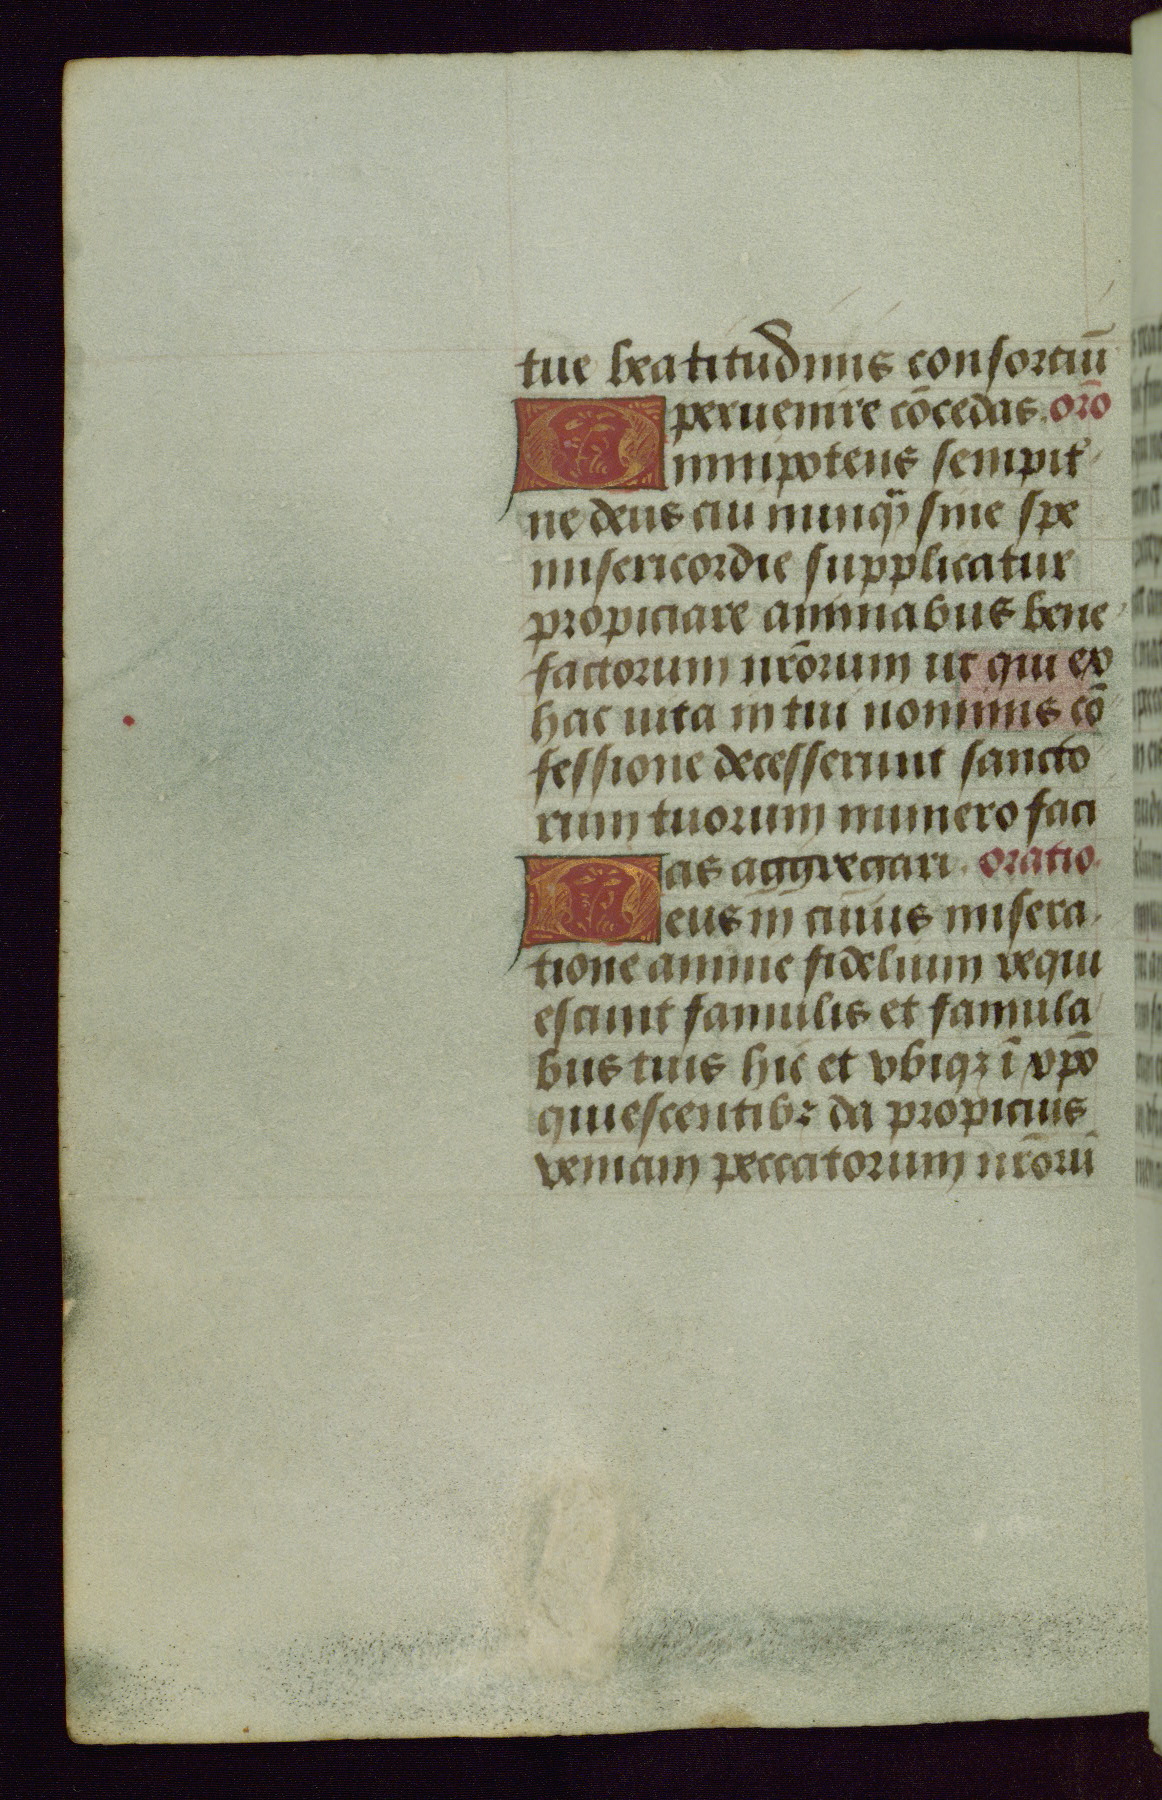 tue beatitudinis consorciū
peruenire cōcedas. orō
Omnipotens sempit̉
ne deus cui nunq̄ sine spe
misericordie supplicatur
propiciare animabus bene
factorum nr̄orum ut qui ex
hac uita in tui nominis cō
fessione decesserunt sancto
rum tuorum numero faci
as aggregari. oratio.
Deus in cuius misera
tione anime fidelium requi
escunt famulis et famula
bus tuis hic et vbiqꝫ ī xp̄o
quiescentibꝫ da propicius
veniam peccatorum nr̄orū